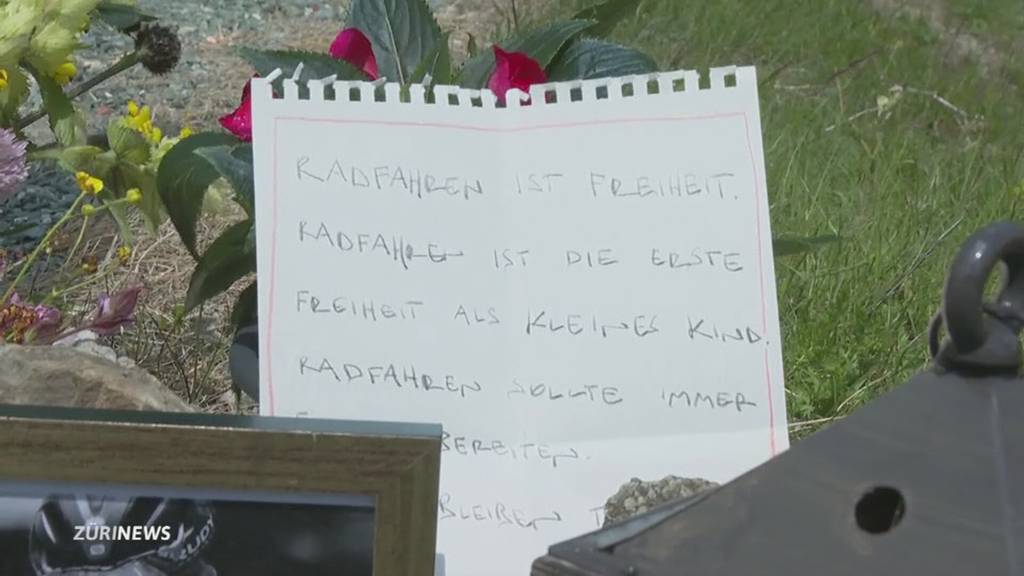 RADFAHREN IST FREIHEIT.
RADFAHREN IST DIE ERSTE
FREIHEIT ALS KLEINES KIND.
RADFAHREN SOLLTE IMMER
BEREITEN.
BLEIBEN
ZÜRINEWS